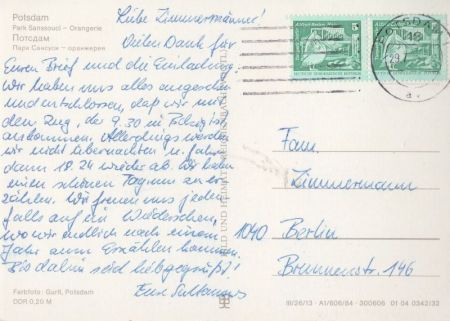 Potsdam
Park Sanssouci – Orangerie
Потсдам
Парк Сансуси – оранжерея
Liebe Zimmermänner!
Vielen Dank für
Euren Brief und die Einladung.
Wir haben uns alles angesehen
und entschlossen, daß wir mit
dem Zug, der 9.30 in
ankommen. Allerdings werden
wir nicht übernachten u. fahren
dann 18.24 wieder ab. Wir haben
einen schönen Tag um zu er-
zählen. Wir freuen uns jeden-
falls auf ein Wiedersehen,
wo wir endlich nach einem
Jahr zum Erzählen kommen.
Bis dahin seid liebgegrüßt!
Eure
Farbfoto: Gurtl, Potsdam
DDR 0,20 M
BILD UND HEIMAT REICHENBACH
5
POTSDAM
Fam.
Zimmermann
1040 Berlin
Brunnenstr. 146
III/26/13 · A1/606/84 · 300606 01 04 0342/32